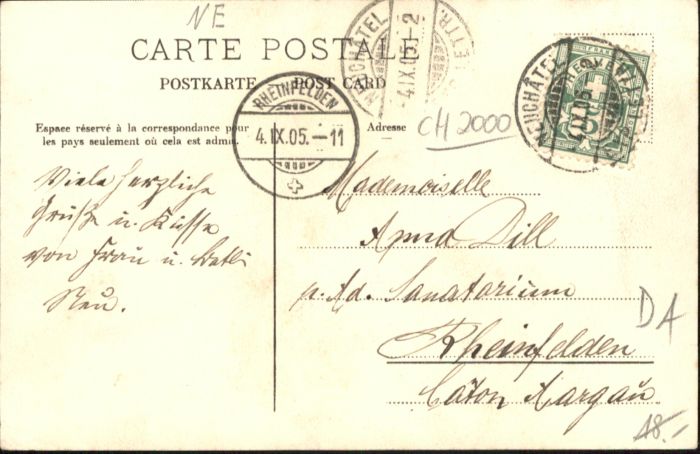 NE
CARTE POSTALE
POSTKARTE POST CARD
NEUCHÂTEL
4 IX.05.-2
LETTR
NEUCHÂTEL
4.IX.05.
FRANCO
RHEINFELDEN
4.IX.05.-11
Espace réservé à la correspondance pour
les pays seulement où cela est admis.
Adresse
CH 2000
Viele herzliche
Grüße u. Küsse
von Frau u. Betli
Neu.
Mademoiselle
Anna Dill
p. Ad. Sanatorium
Rheinfelden
Caton Aargau
DA
18.-